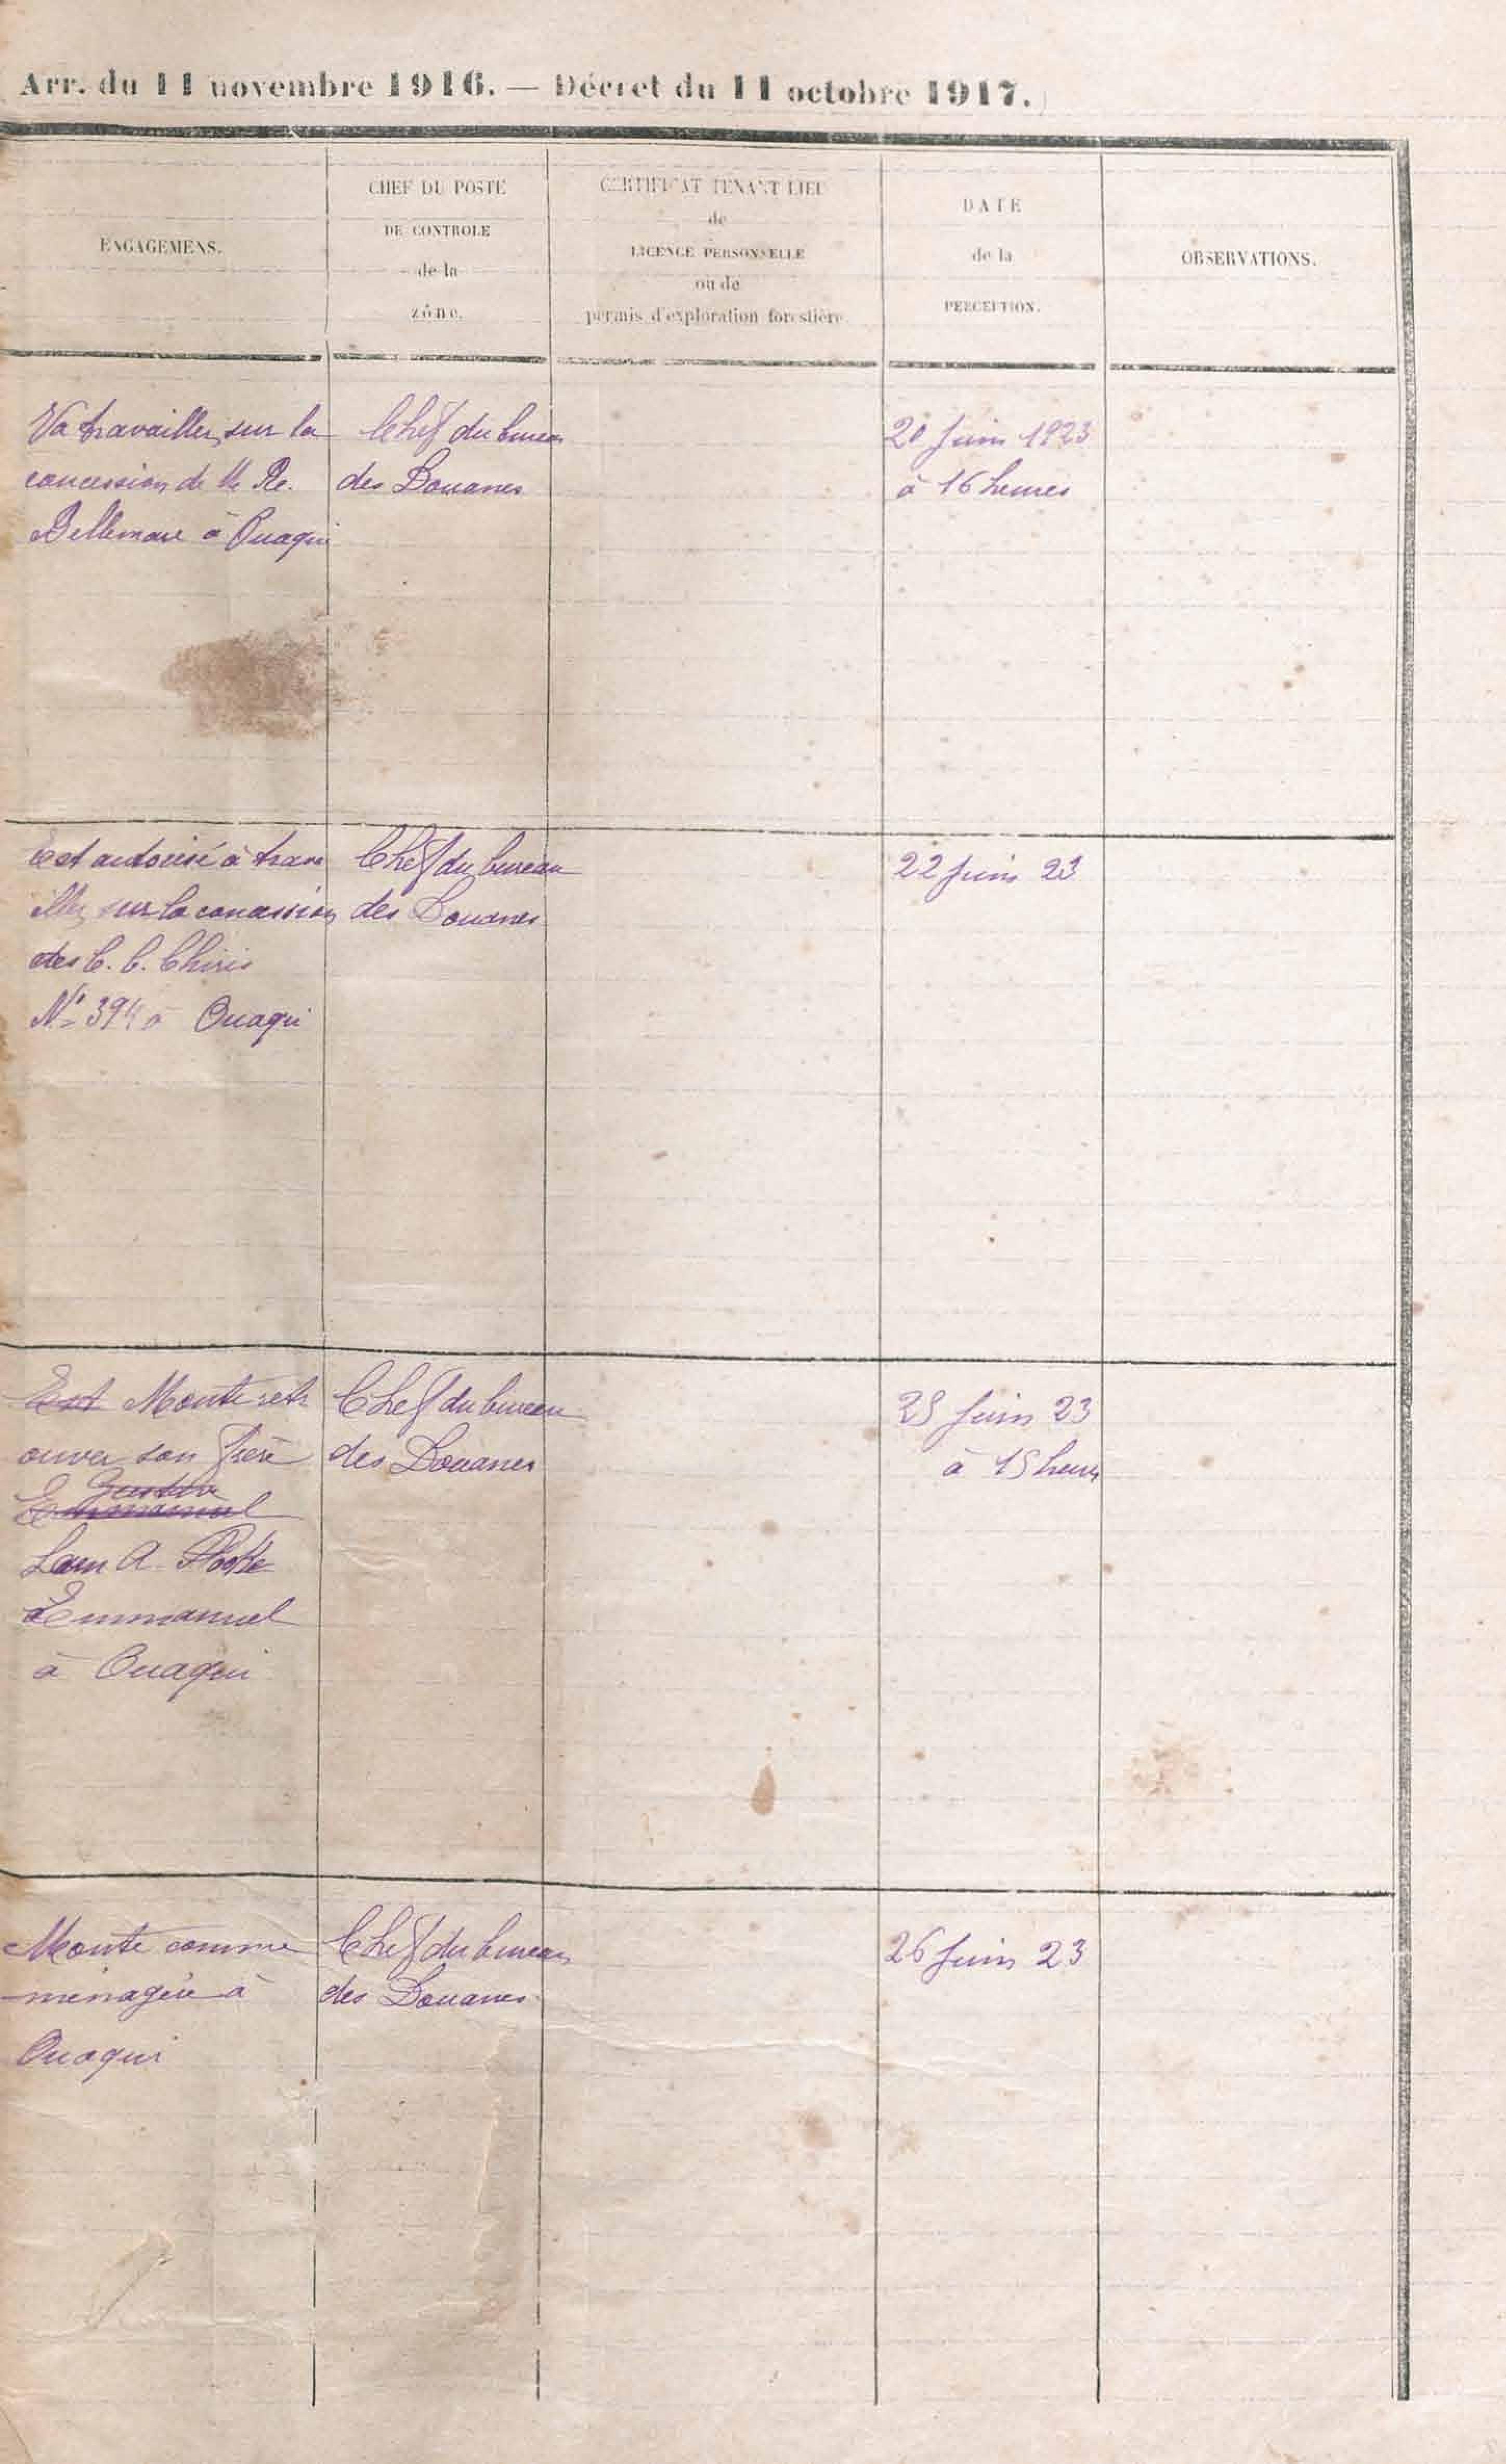 Arr. du 11 novembre 1916. — Décret du 11 octobre 1917.
ENGAGEMENS.
CHEF DU POSTE
DE CONTROLE
de la
zône.
CERTIFICAT TENANT LIEU
de
LICENCE PERSONNELLE
ou de
permis d'exploration forestière.
DATE
de la
PERCEPTION.
OBSERVATIONS.
Va travailler sur la
concession de M Re.
Bellemare à Ouaqui
Chef du bureau
des Douanes
20 Juin 1923
à 16 heures
Est autorisé à trava
iller sur la concession
des C. C. Chiris
N° 394 à Ouaqui
Chef du bureau
des Douanes
22 Juin 23
Est Monte retr
ouver son frère
Gustave
Emmanuel
A.
Emmanuel
à Ouaqui
Chef du bureau
des Douanes
25 Juin 23
à 15 heures
Monte comme
ménagère à
Ouaqui
Chef du bureau
des Douanes
26 Juin 23